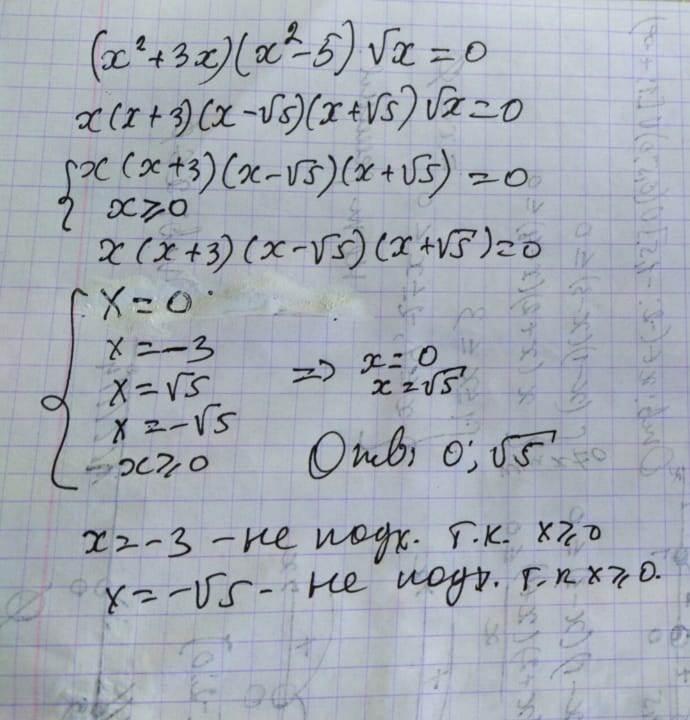 (x²+3x)(x²-5)√x = 0
x(x+3)(x-√5)(x+√5)√x=0
{x(x+3)(x-√5)(x+√5) = 0
x≥0
x(x+3)(x-√5)(x+√5)=0
{x=0
x=-3
x=√5
x=-√5
x≥0
=> x=0
x=√5
Отв: 0; √5
x=-3 - не подх. т.к. x≥0
x=-√5 - не подх. т.к x≥0.